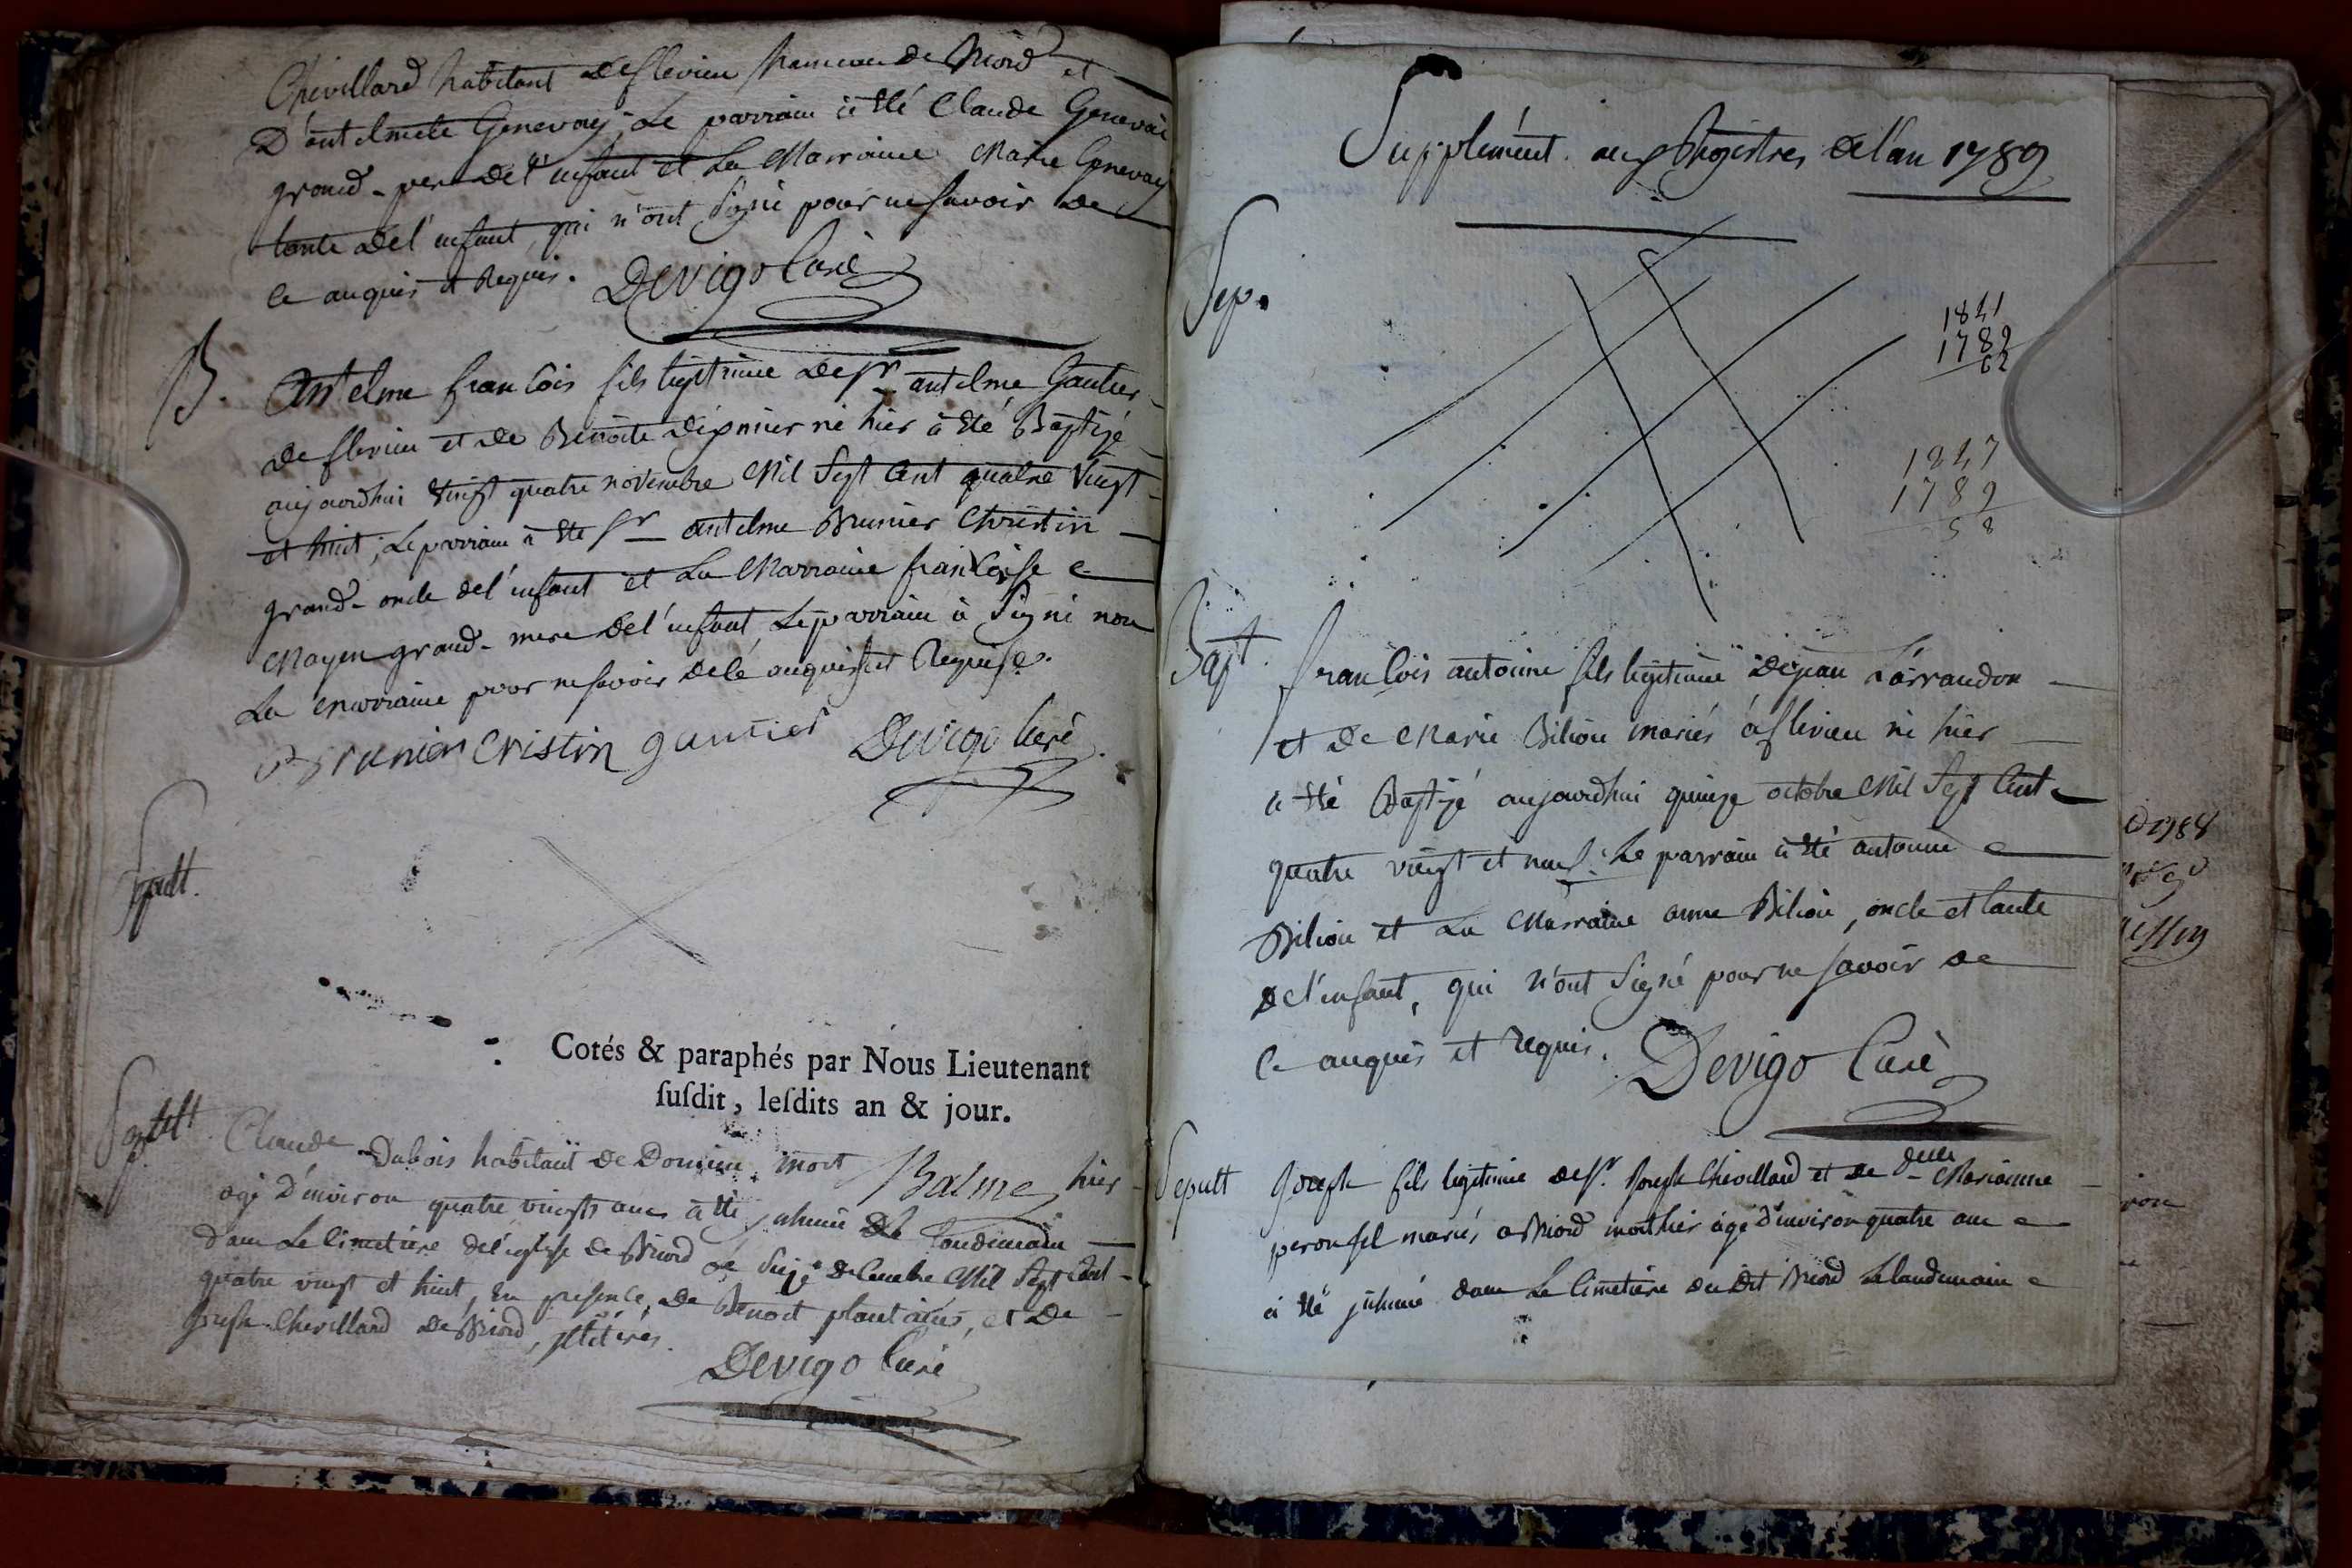 Chevillard habitant de flevieu hameau de Briord et
D'antelmete Genevay; Le parrain à été Claude Genevai
grand-pere de l'enfant et La Marraine Marie Genevay
tante de l'enfant, qui n'ont Signé pour ne Savoir de
ce anquis et Requis. Devigo Curé
B. Antelme francois fils legitimme de Sr antelme Gautier
de flevieu et de Benoite Dépnier né hier à été Baptizé
aujourdhui vingt quatre novembre Mil Sept Cent quatre vingt
et huit; Le parrain à été Sr antelme Brunier Christin
grand-oncle de l'enfant et La Marraine francoise
Mayen grand-mere de l'enfant, Le parrain à Signé non
La marraine pour ne Savoir de Ce anquise et Requise.
Brunier Cristin gautier Devigo Curé
Sepult.
Cotés & paraphés par Nous Lieutenant
ſuſdit, leſdits an & jour.
Balme
Sepult Claude Dubois habitant de mort hier
agé d'environ quatre vingts ans à été inhumé Le Landemain
dans Le Cimetiere de l'eglise de Briord ce Seize decembre Mil Sept Cent
quatre vingt et huit, En presence de Benoit plantaius, et De
Joseph Chevillard de Briord, illiterés.
Devigo Curé
Supplément aux Registres de l'an 1789
Sep.
1841
1789
62
1847
1789
58
Bapt. francois antoine fils legitimme de jean Larrandon
et de Marie Biliou mariés à flevieu né hier
à été Baptizé aujourdhui quinze octobre Mil Sept Cent
quatre vingt et neuf. Le parrain à été antoine
Biliou et La Marraine anne Biliou, oncle et tante
de l'enfant, qui n'ont Signé pour ne Savoir de
Ce anquis et Requis. Devigo Curé
Sepult Joseph fils legitimme de Sr. Joseph Chevillard et de delle Marianne
peronsel mariés a Briord mort hier agé d'environ quatre ans
à été inhumé dans Le Cimetiere du Dit Briord Le landemain
1788